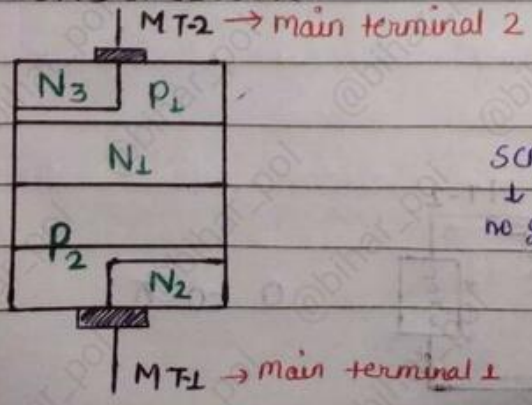 MT-2 → main terminal 2
N3 P1
N1
P2
N2
MT-1 → main terminal 1
@bihar_pol